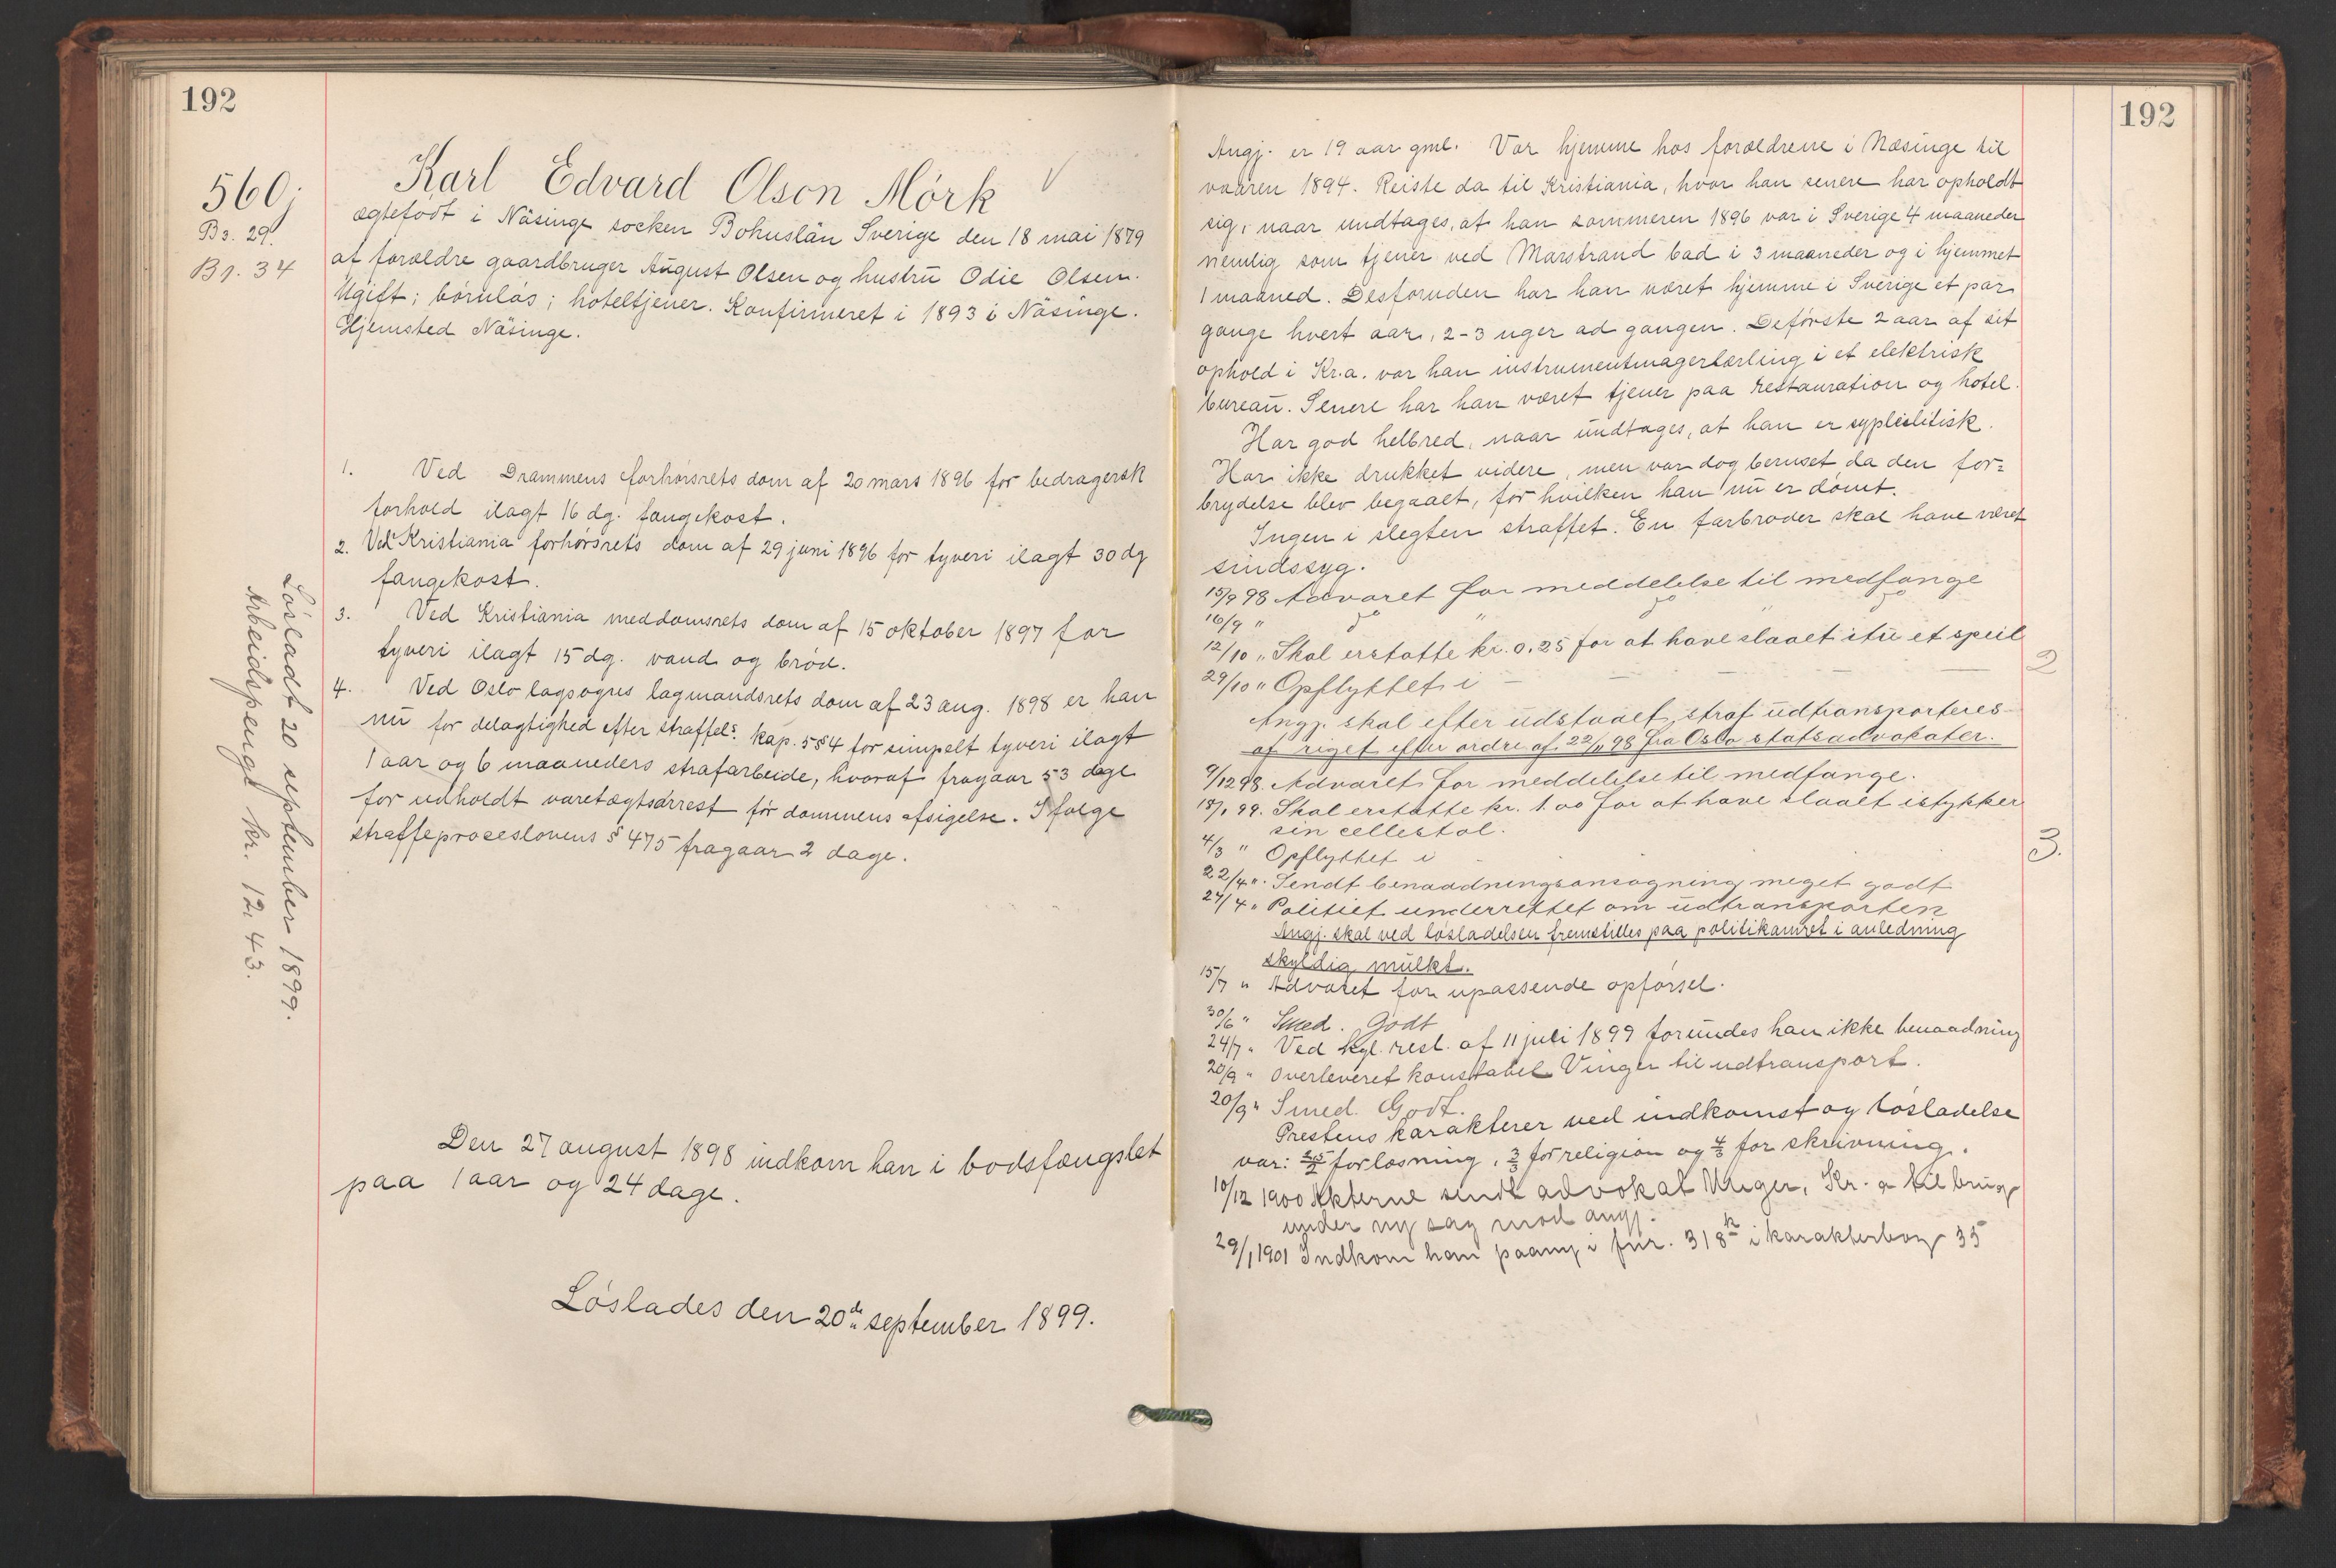 192
560j
B3. 29.
B1. 34
Karl Edvard Olson Mörk
ægtefödt i Näsinge socken Bohuslän Sverige den 18 mai 1879
af forældre gaardbruger August Olsen og hustru Odie Olsen.
Ugift; börnlös; hoteltjener. Konfirmeret i 1893 i Näsinge.
Hjemsted Näsinge.
1. Ved Drammens forhörsrets dom af 20 mars 1896 for bedragersk
forhold ilagt 16 dg. fangekost.
2. Ved Kristiania forhörsrets dom af 29 juni 1896 for tyveri ilagt 30 dg
fangekost.
3. Ved Kristiania meddomsrets dom af 15 oktober 1897 for
tyveri ilagt 15 dg. vand og bröd.
4. Ved Oslo lagsogns lagmandsrets dom af 23 aug. 1898 er han
nu for delagtighed efter straffels. kap. 5 § 4 for simpelt tyveri ilagt
1 aar og 6 maaneders strafarbeide, hvoraf fragaar 53 dage
for udholdt varetægtsarrest för dommens afsigelse. Ifølge
straffeproceslovens § 475 fragaar 2 dage.
Lösladt 20 september 1899.
Arbeidspenge kr. 12,43.
Den 27 august 1898 indkom han i bodsfængslet
paa 1 aar og 24 dage.
Löslades den 20de september 1899.
192
Angj. er 19 aar gml. Var hjemme hos forældrene i Næsinge til
vaaren 1894. Reiste da til Kristiania, hvor han senere har opholdt
sig, naar undtages, at han sommeren 1896 var i Sverige 4 maaneder
nemlig som tjener ved Marstrand bad i 3 maaneder og i hjemmet
1 maaned. Desforuden har han været hjemme i Sverige et par
gange hvert aar, 2-3 uger ad gangen. De förste 2 aar af sit
ophold i Kr.a. var han instrumentmagerlærling i et elektrisk
bureau. Senere har han været tjener paa restauration og hotel.
Har god helbred, naar undtages, at han er syphilitisk.
Har ikke drukket videre, men var dog beruset da den for-
brydelse blev begaaet, for hvilken han nu er dömt.
Ingen i slegten straffet. En farbroder skal have været
sindssyg.
15/9 98 Advaret for meddelelse til medfange
16/9 " do " do " do
12/10 " Skal erstatte kr. 0.25 for at have slaaet itu et speil
29/10 " Opflyttet i — — — — 2
Angj. skal efter udstaaet straf udtransporteres
af riget efter ordre af 22/11 98 fra Oslo statsadvokater.
9/12 98. Advaret for meddelelse til medfange.
18/1 99. Skal erstatte kr. 1.00 for at have slaaet istykker
sin cellestol.
4/3 " Opflyttet i 3.
22/4 ". Sendt benaadningsansøgning meget godt
27/4 " Politiet underrettet om udtransporten
Angj. skal ved lösladelsen fremstilles paa politikamret i anledning
skyldig mulkt.
15/7 " Advaret for upassende opförsel.
30/6 " Smed. Godt
24/7 " Ved kgl. resl. af 11 juli 1899 forundes han ikke benaadning
20/9 " Overleveret konstabel Vinger til udtransport.
20/9 " Smed. Godt.
Prestens karakterer ved indkomst og lösladelse
var: 2,5/2 for læsning, 3/3 for religion og 4/3 for skrivning.
10/12 1900 Akterne sendt advokat Unger, Kr.a til brug
under ny sag mod angj.
29/1 1901 Indkom han paany i fnr. 318 k i karakterbog 35